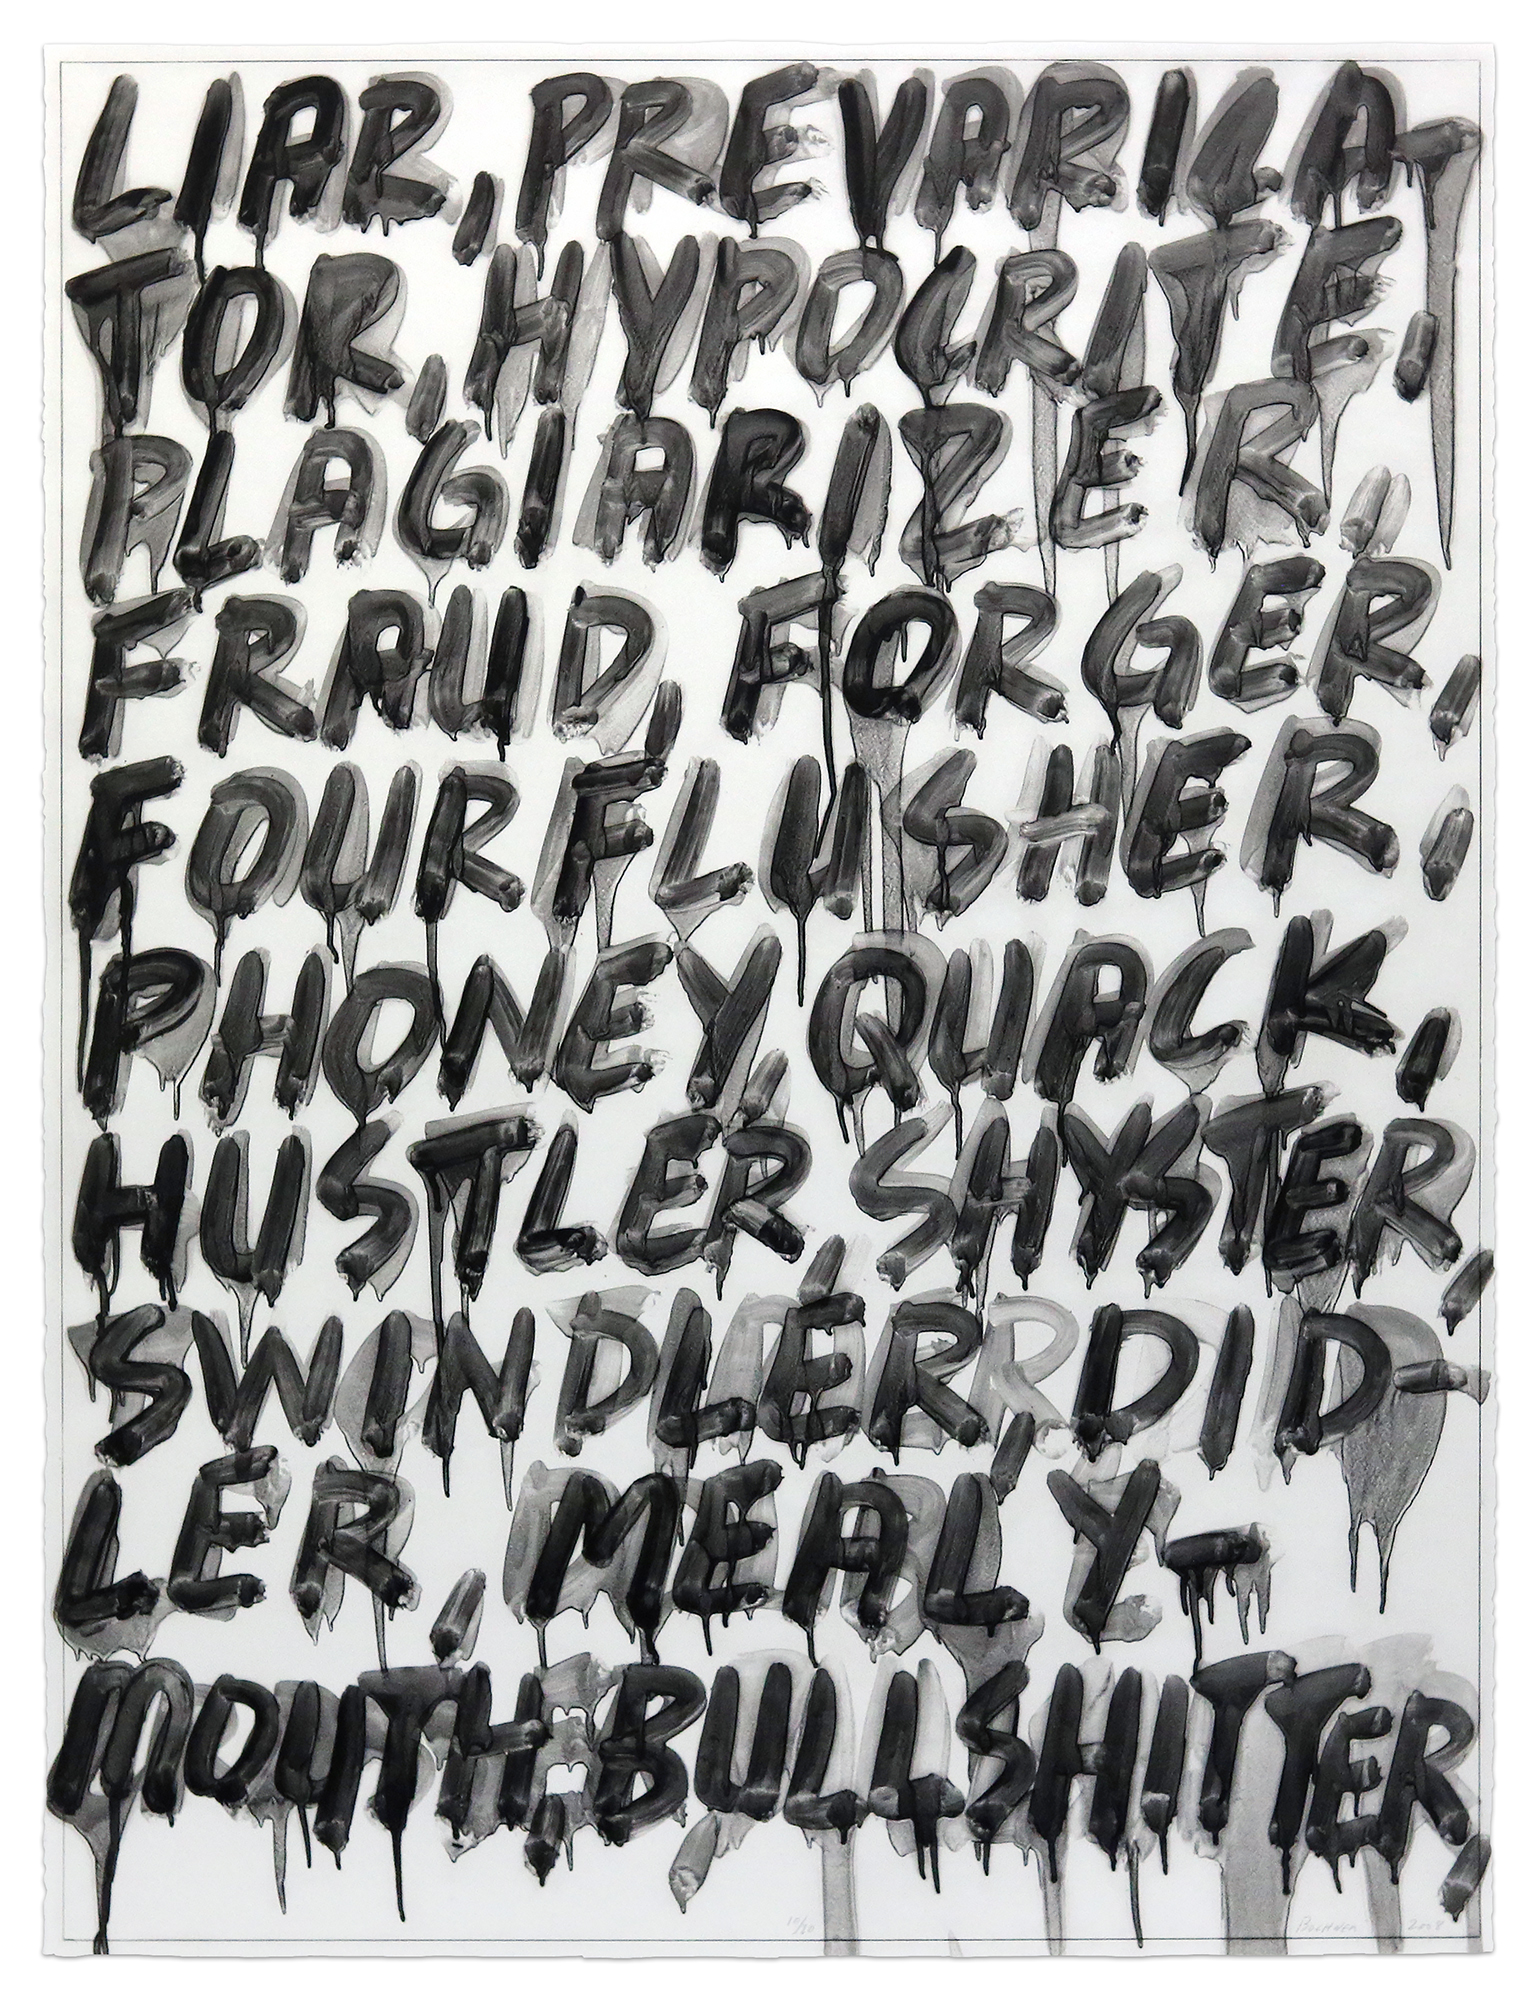 LIAR, PREVARICA
TOR, HYPOCRITE,
PLAGIARIZER,
FRAUD, FORGER,
FOURFLUSHER,
PHONEY, QUACK,
HUSTLER, SHYSTER,
SWINDLER, DID-
LER, MEALY-
MOUTH, BULLSHITTER,
10/20 Bochner 2008